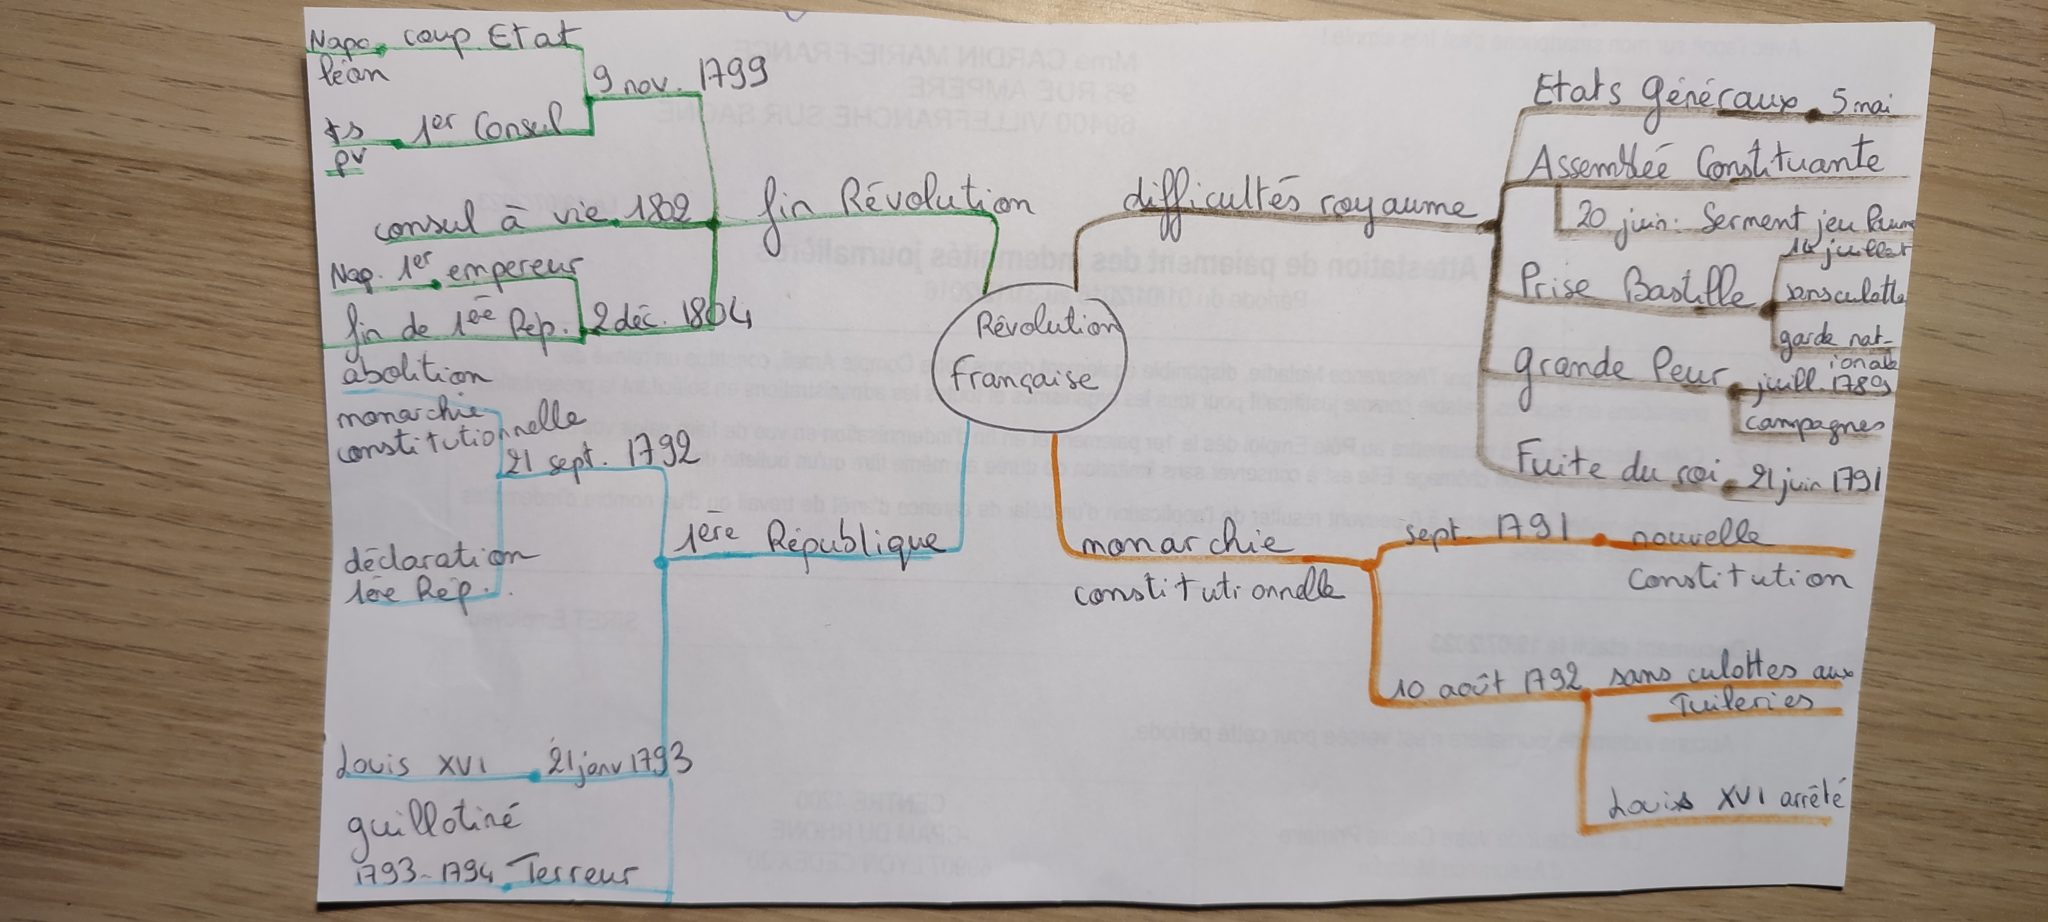 Révolution
Française
difficultés royaume
Etats Généraux 5 mai
Assemblée Constituante
20 juin: Serment jeu Paume
Prise Bastille
14 juillet
sansculotte
garde nat-
ionale
Grande Peur
juill. 1789
campagnes
Fuite du roi 21 juin 1791
monarchie
constitutionnelle
sept. 1791 nouvelle
Constitution
10 août 1792 sans culottes aux
Tuileries
Louis XVI arrêté
1ère République
21 sept. 1792
abolition
monarchie
constitutionnelle
déclaration
1ère Rép.
Louis XVI 21 janv 1793
guillotiné
1793-1794 Terreur
fin Révolution
9 nov. 1799
Napo coup Etat
léon
ts 1er Consul
pv
consul à vie 1802
2 déc. 1804
Nap. 1er empereur
fin de 1ère Rép.
Mme CARDIN MARIE-FRANCE
RUE AMPERE
69400 VILLEFRANCHE SUR SAONE
Attestation de paiement des indemnités journalières